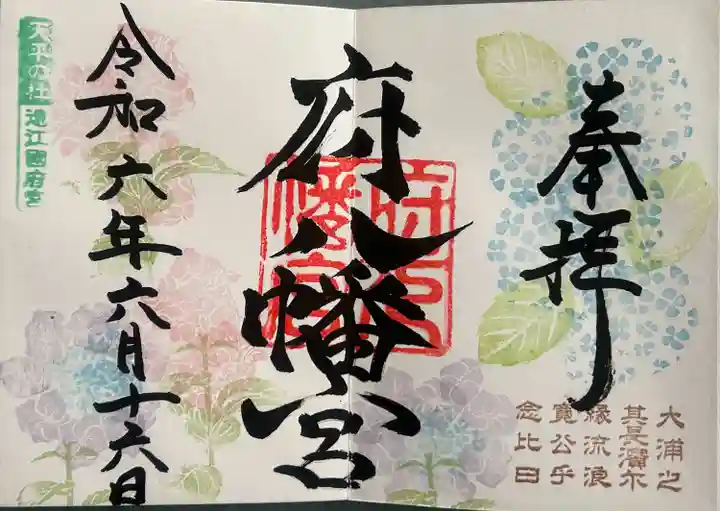 奉拝
大浦之
其長濱尓
縁流浪
寛公乎
念比日
府八幡宮
府八
幡宮
令和六年六月十六日
天平の社 遠江國府宮